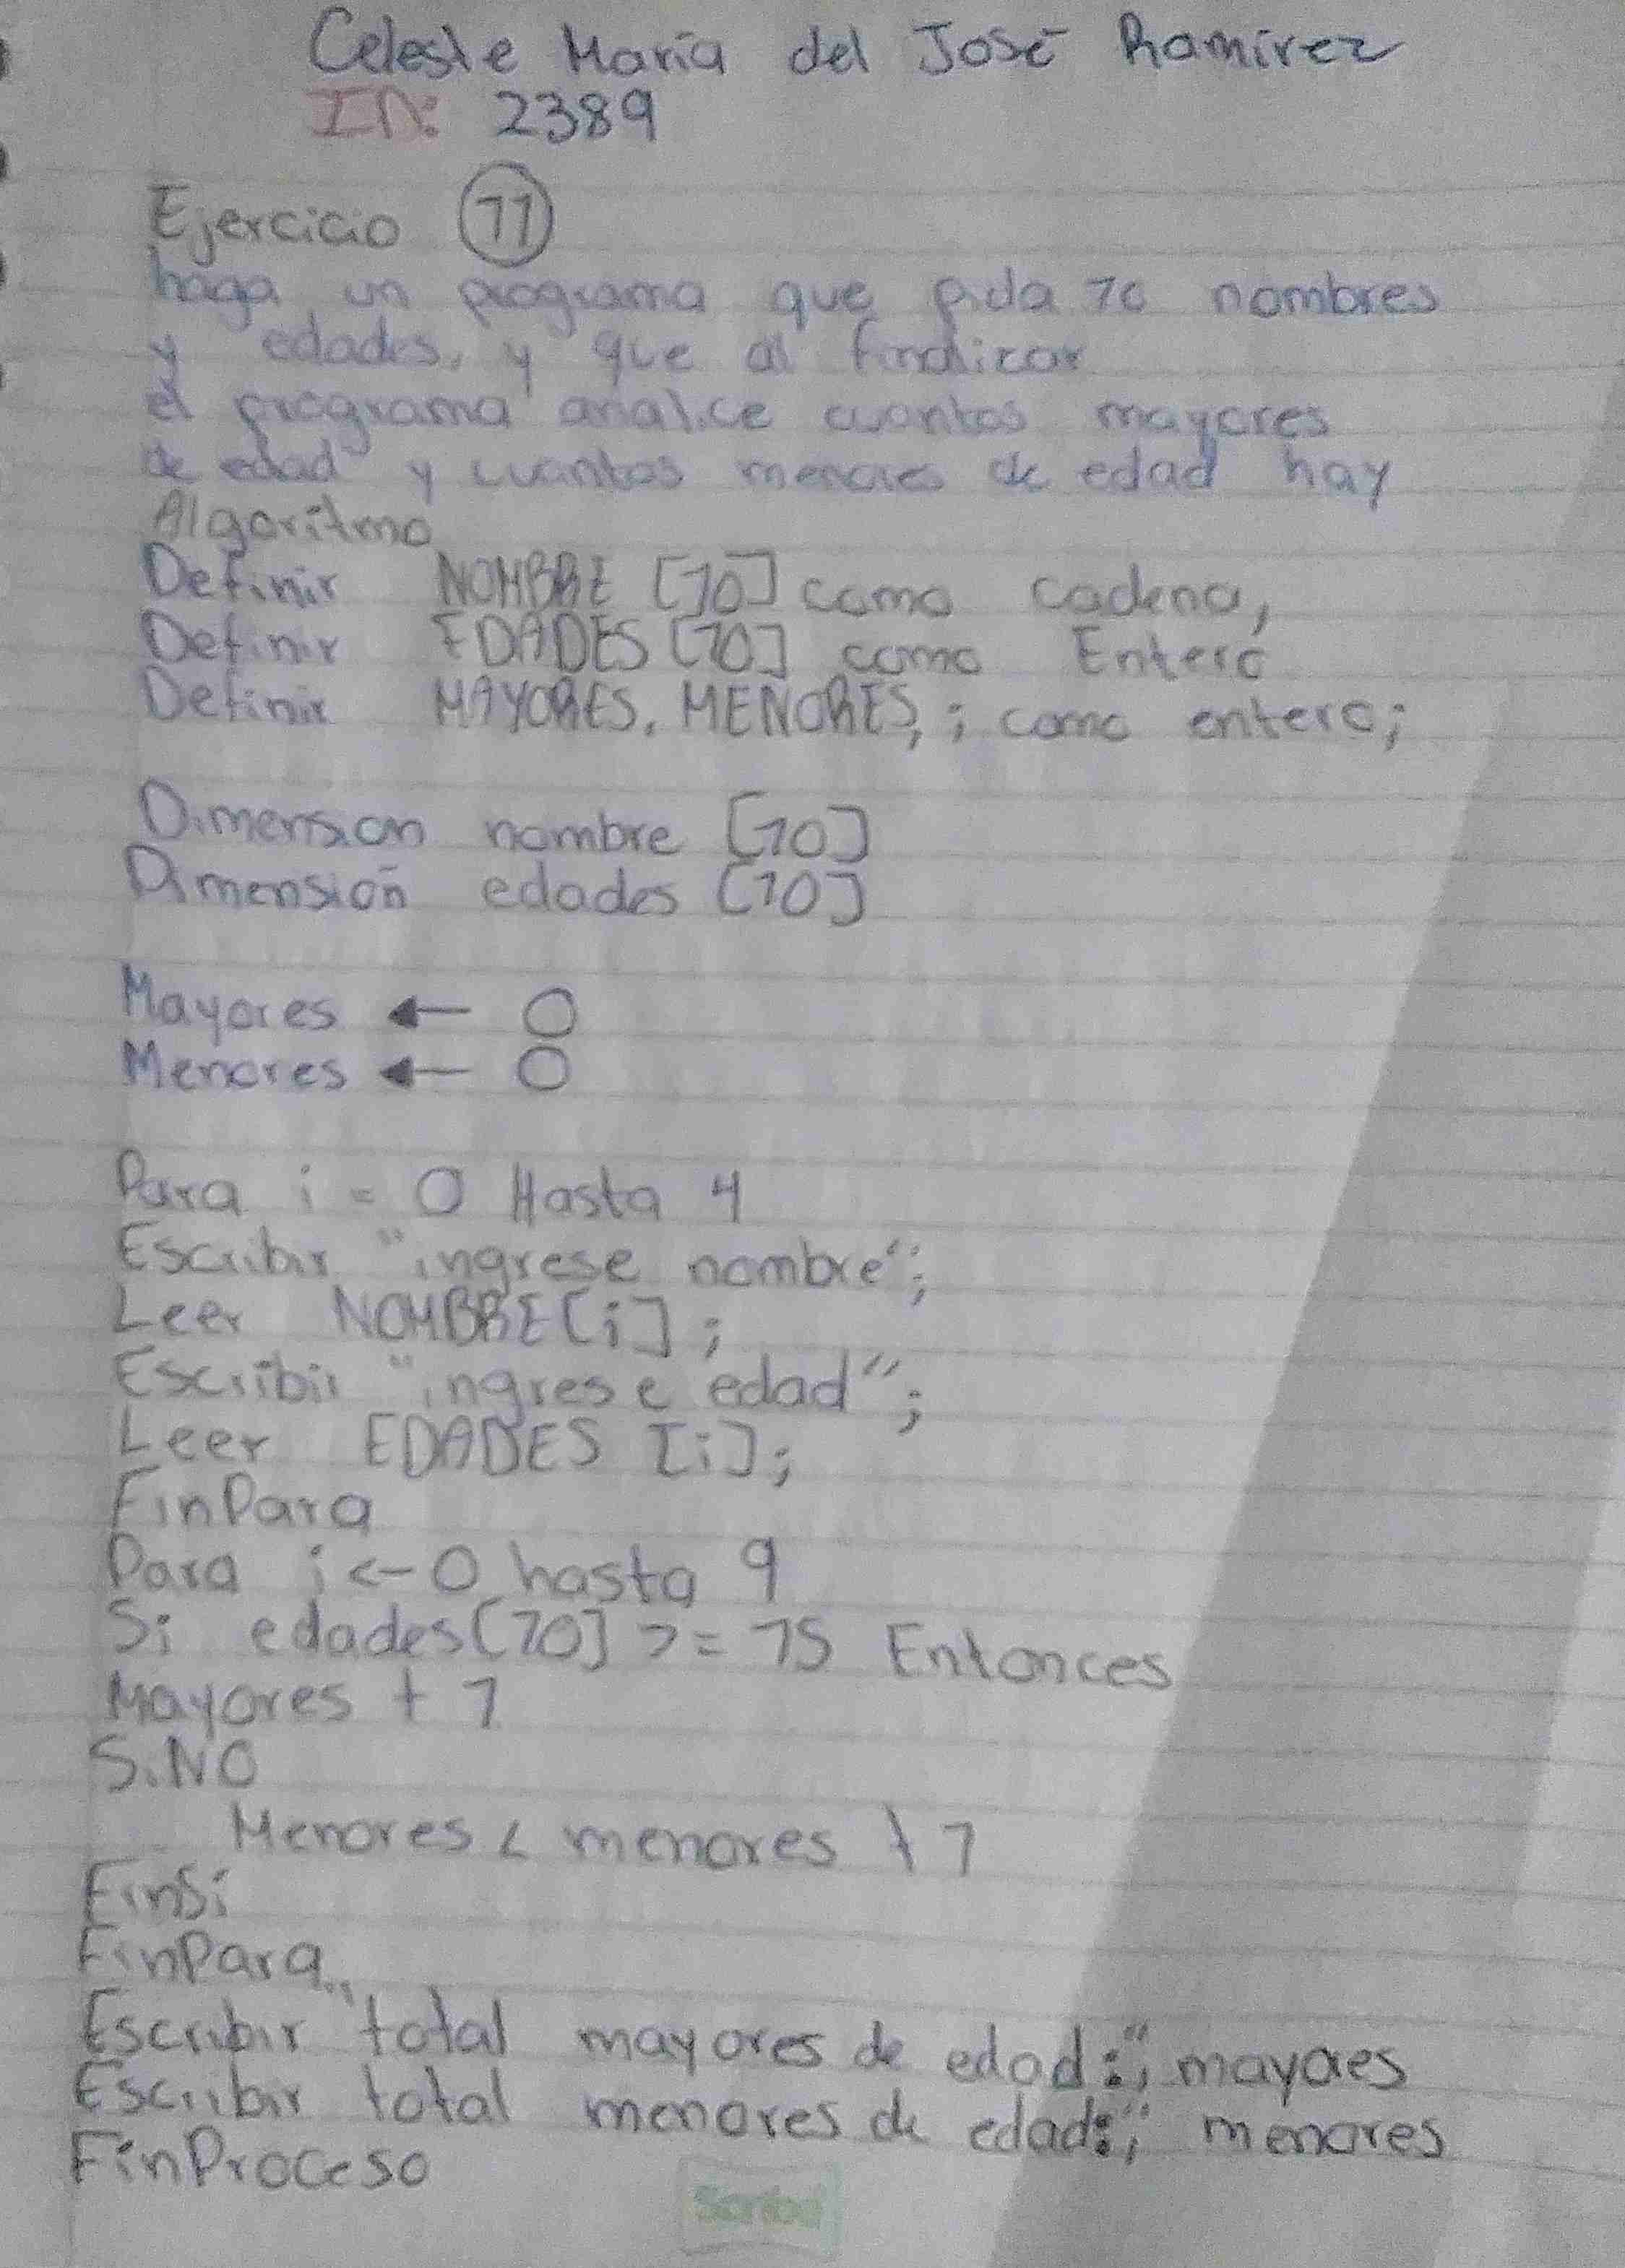 Celeste María del José Ramírez
ID: 2389
Ejercicio 11
haga un programa que pida 10 nombres
y edades, y que al finalizar
el programa analice cuantos mayores
de edad y cuantos menores de edad hay
Algoritmo
Definir NOMBRE [10] como cadena,
Definir EDADES [10] como Entero
Definir MAYORES, MENORES, i como entero;
Dimension nombre [10]
Dimensión edades [10]
Mayores ← 0
Menores ← 0
Para i = 0 Hasta 4
Escribir "ingrese nombre";
Leer NOMBRE [i];
Escribir "ingrese edad";
Leer EDADES [i];
FinPara
Para i <- 0 hasta 9
Si edades [10] >= 15 Entonces
Mayores + 1
SiNO
Menores < menores + 1
FinSi
FinPara
Escribir "total mayores de edad:"; mayores
Escribir total menores de edad:"; menores
FinProceso
Scribe